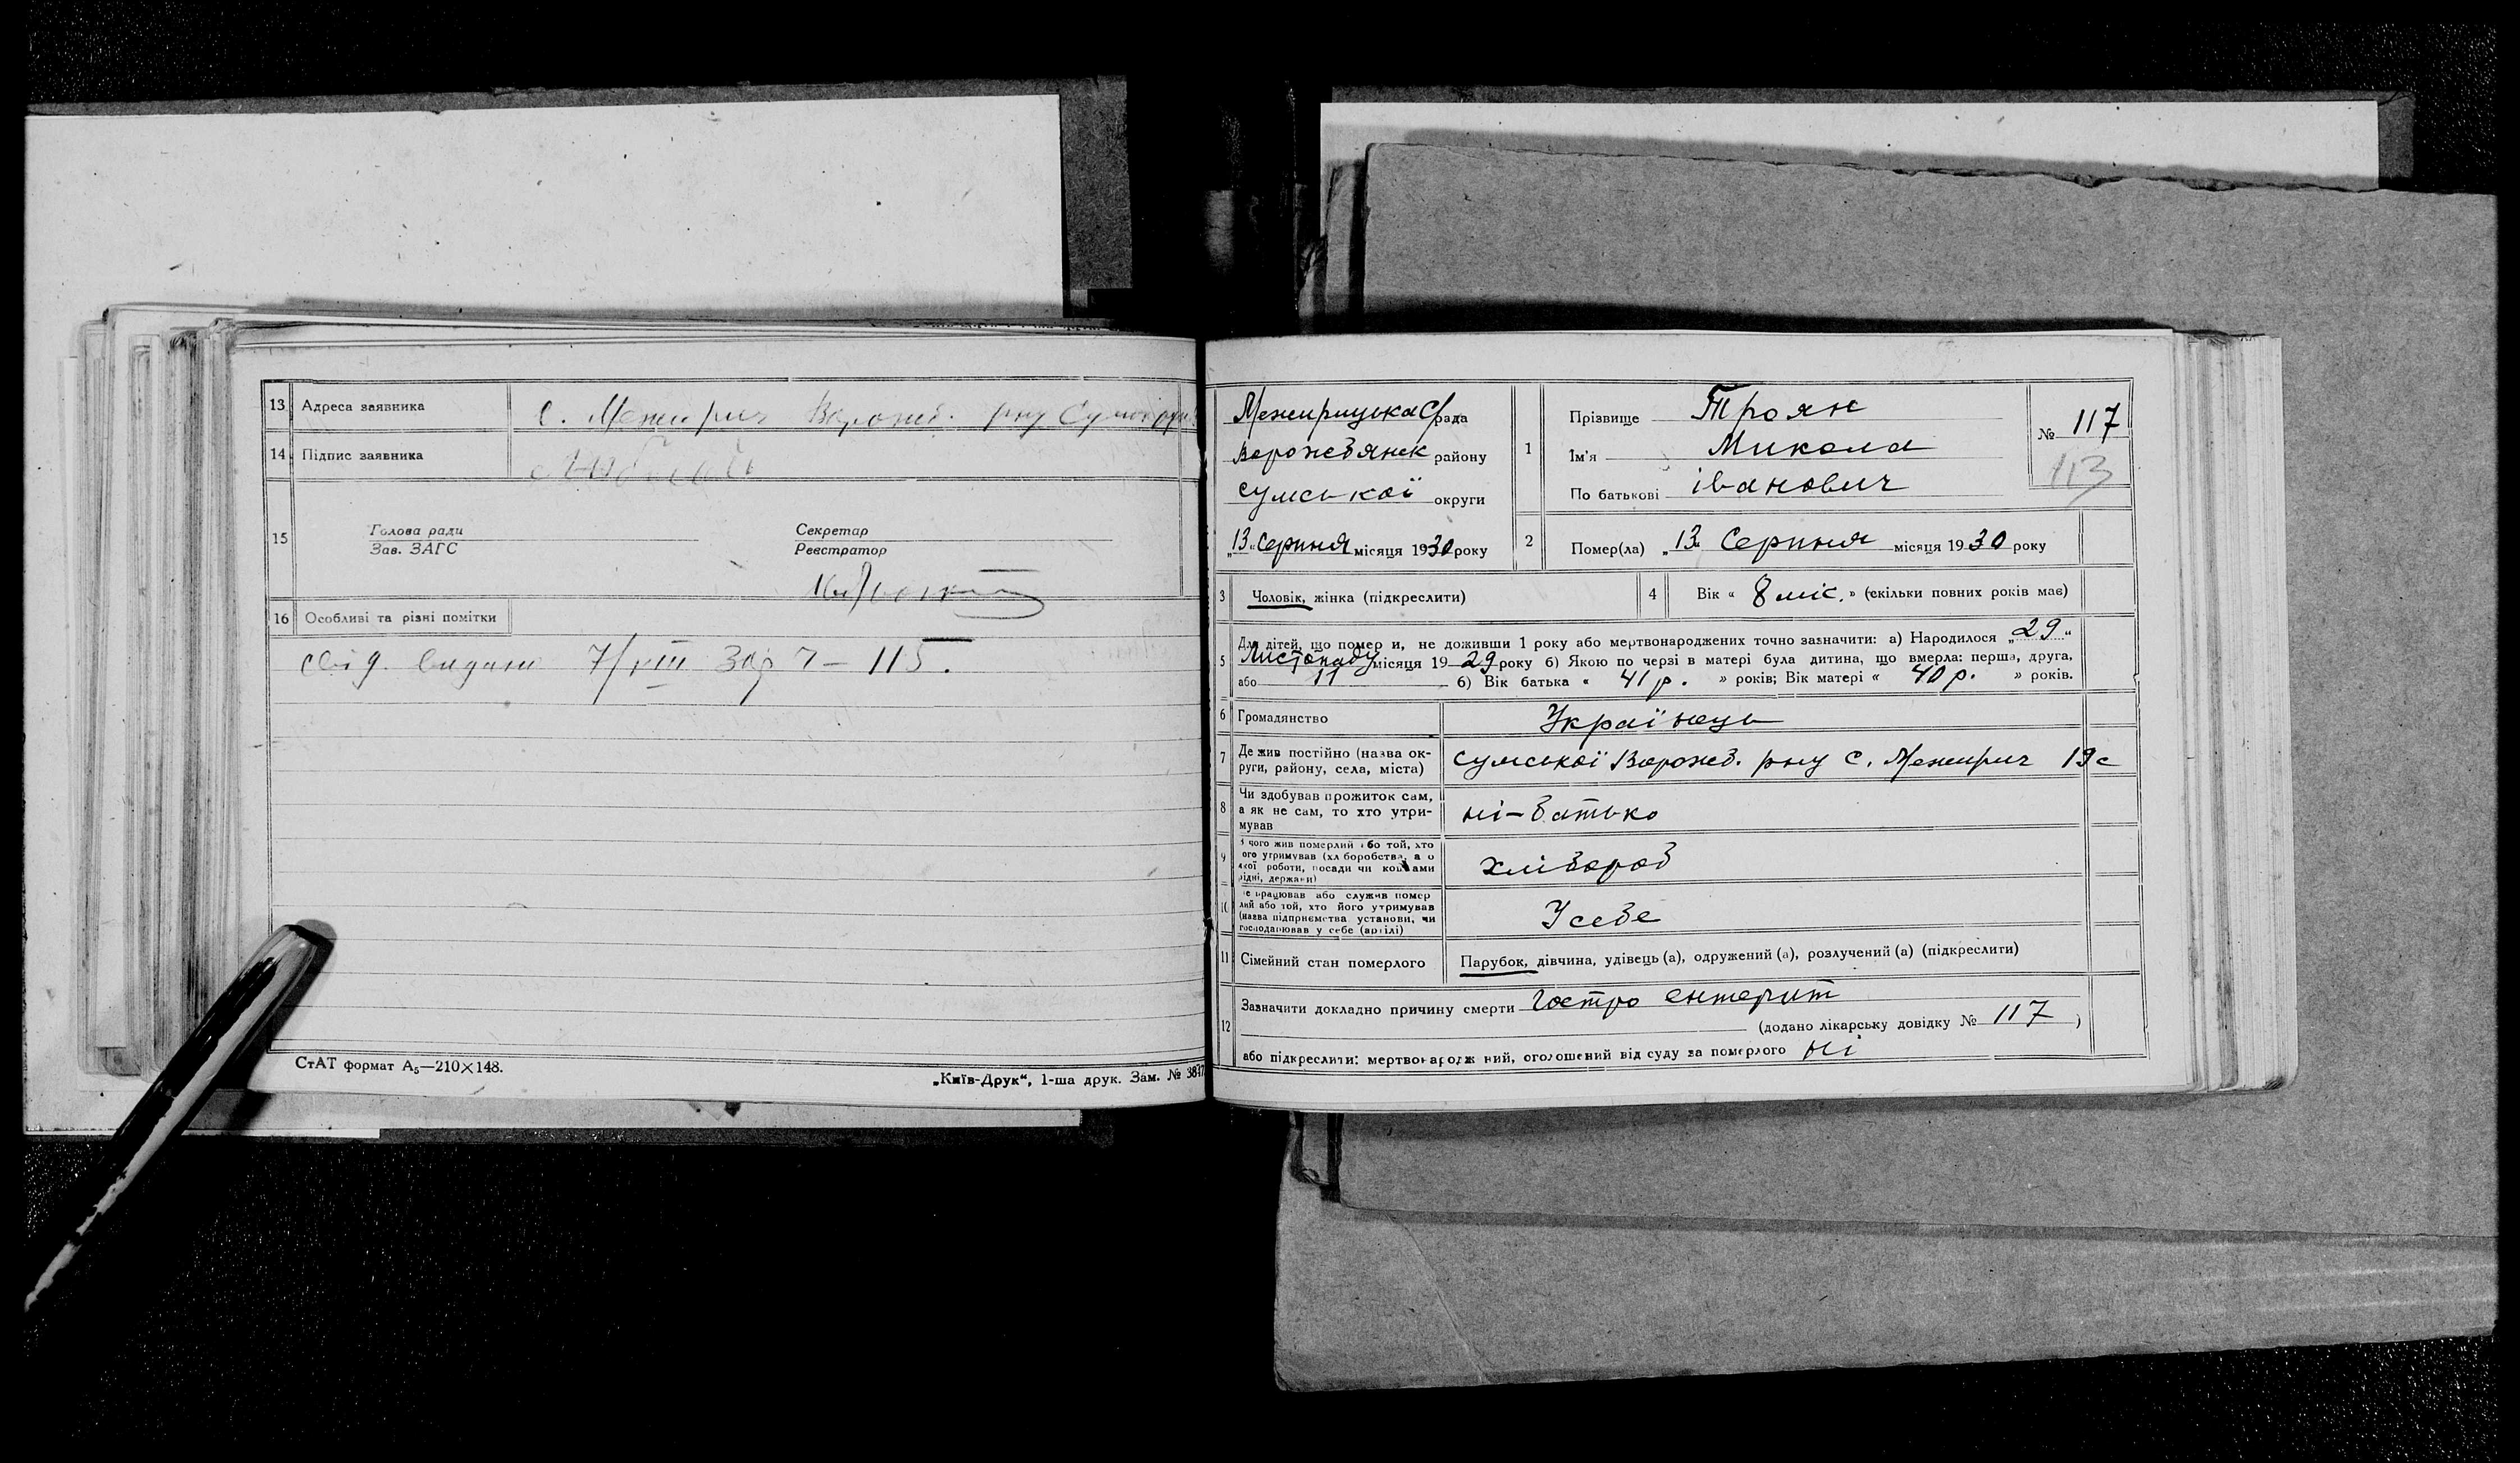 13 Адреса заявника с. Межирич Ворожб. р-ну Сумськ окр.
14 Підпис заявника
15 Голова ради Секретар
Зав. ЗАГС Реєстратор
16 Особливі та різні помітки
свід. видано 7/VIII 115.
СтАТ формат А₅—210×148.
„Київ-Друк“, 1-ша друк. Зам. №
Межирицька С/рада
Ворожбянськ району
Сумської округи
„13“ Серпня місяця 1930 року
1 Прізвище Троян
Ім'я Микола
По батькові іванович
№ 117
113
2 Помер(ла) „13“ Серпня місяця 1930 року
3 Чоловік, жінка (підкреслити)
4 Вік « 8 міс. » (скільки повних років має)
5 Для дітей, що померли, не доживши 1 року або мертвонароджених точно зазначити: а) Народилося „29“
Листопаду місяця 1929 року б) Якою по черзі в матері була дитина, що вмерла: перша, друга,
або 11 б) Вік батька « 41 р. » років; Вік матері « 40 р. » років.
6 Громадянство Українець
7 Де жив постійно (назва ок-
руги, району, села, міста) Сумської Ворожб. р-ну С. Межирич 19с
8 Чи здобував прожиток сам,
а як не сам, то хто утри-
мував ні-батько
9 З чого жив померлий або той, хто
його утримував (хліборобства, або
якої роботи, посади чи коштами
рідні, держави) хлібороб
10 Де працював або служив помер
лий або той, хто його утримував
(назва підприємства установи, чи
господарював у себе (артілі) У себе
11 Сімейний стан померлого Парубок, дівчина, удівець (а), одружений (а), розлучений (а) (підкреслити)
12 Зазначити докладно причину смерти Гостро ентерит
(додано лікарську довідку № 117 )
або підкреслити: мертвонароджений, оголошений від суду за померлого ні